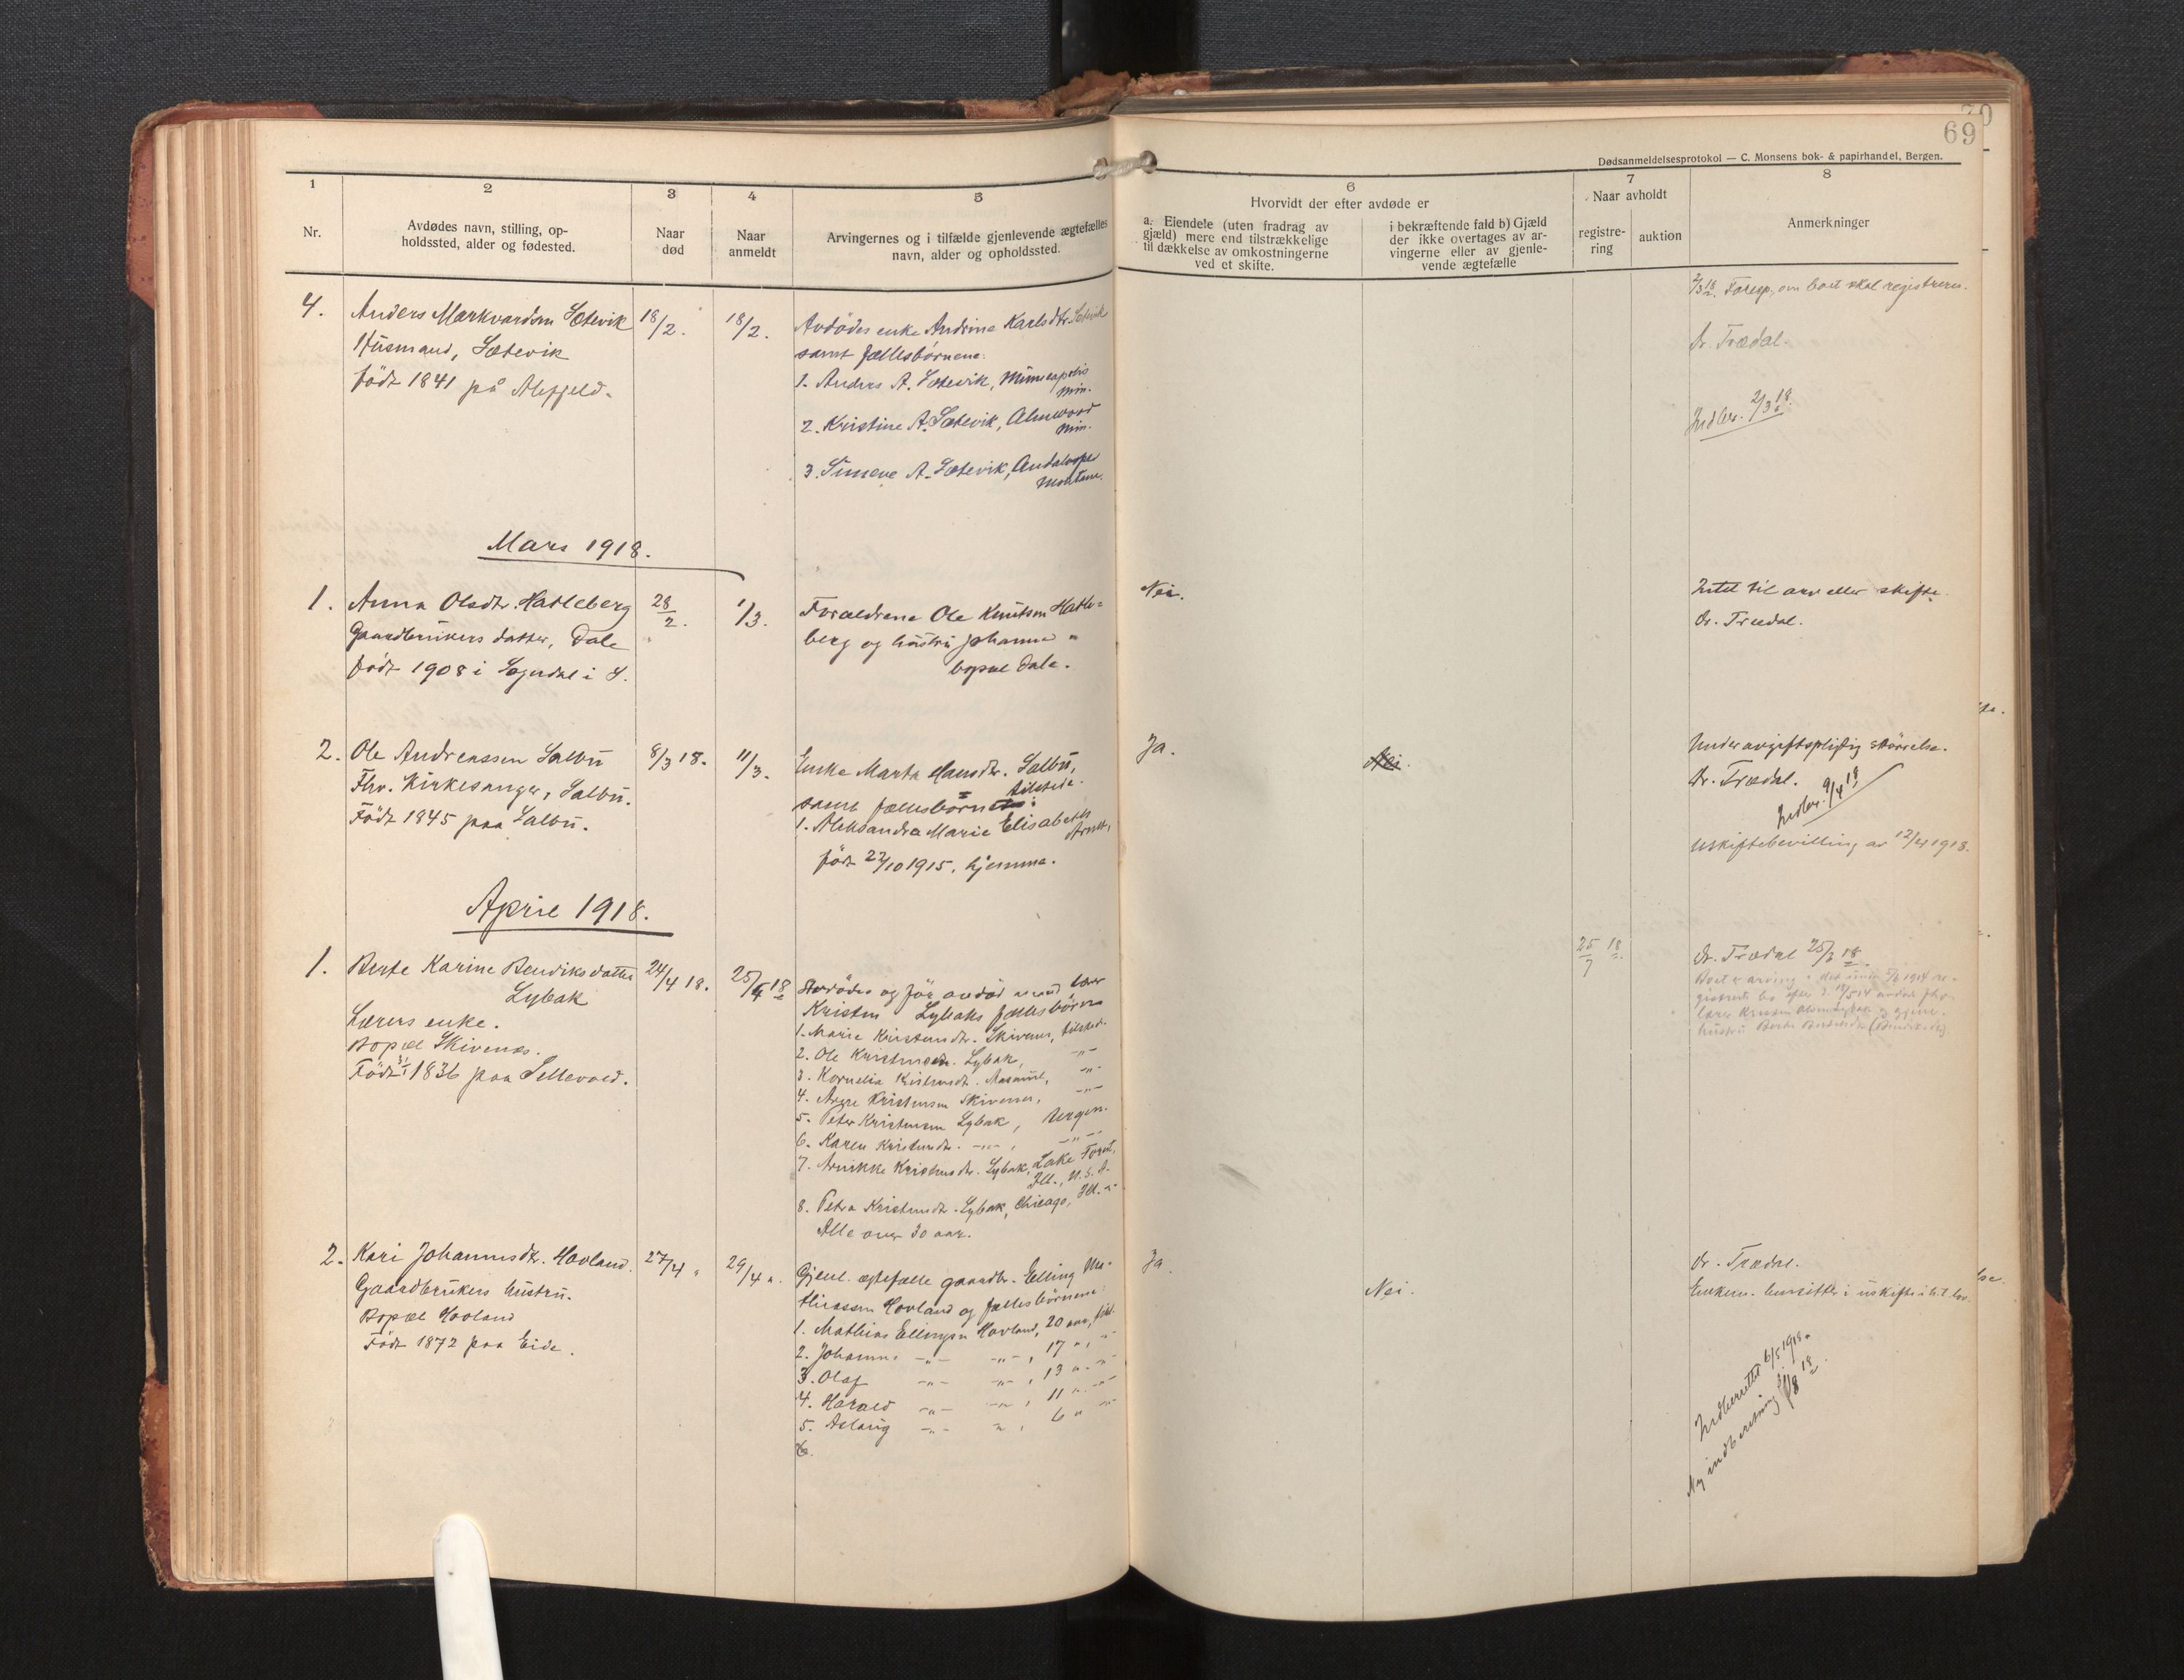 70
69
Dødsanmeldelsesprotokol — C. Monsens bok- & papirhandel, Bergen.
1
2
3
4
5
6
7
8
Nr.
Avdødes navn, stilling, op-
holdssted, alder og fødested.
Naar
død
Naar
anmeldt
Arvingernes og i tilfælde gjenlevende ægtefælles
navn, alder og opholdssted.
Hvorvidt der efter avdøde er
a. Eiendele (uten fradrag av
gjæld) mere end tilstrækkelige
til dækkelse av omkostningerne
ved et skifte.
i bekræftende fald b) Gjæld
der ikke overtages av ar-
vingerne eller av gjenle-
vende ægtefælle
Naar avholdt
registre-
ring
auktion
Anmerkninger
4.
Anders Markvardsen Sætevik
Husmand, Sætevik
født 1841 på
18/2.
18/2.
Avdødes enke Andrine Karlsdtr. Sætevik
samt fællesbørnene:
1. Anders A. Sætevik, Minneapolis
Min.
2. Kristine A. Sætevik,
Min.
3. A. Sætevik,
Montana.
Foresp. om boet skal registreres.
Dr. Trædal.
Indber. 2/3 18.
Mars 1918.
1.
Anna Olsdtr. Hatleberg
Gaardbrukers datter, Dale
født 1908 i Sogndal i S.
28/2.
1/3.
Forældrene Ole Knutsen Hatle-
berg og hustru Johanne "
bopæl Dale.
Nei.
Intet til arv eller skifte.
Dr. Trædal.
2.
Ole Andreassen Salbu
Fhv. Kirkesanger, Salbu.
Født 1845 paa Salbu.
8/3 18.
11/3.
Enke Marta Hansdtr. Salbu,
tilstede.
samt fællesbarn:
1. Aleksandra Marie Elisabeth
født 23/10 1915, hjemme.
Ja.
Nei.
Under avgiftspligtig størrelse.
Dr. Trædal.
Indber. 9/4 18
Uskiftebevilling av 12/4 1918.
April 1918.
1.
Berte Karine Bendiksdatter
Lybak
Lærers enke.
Bopæl Skivenes.
Født 1836 paa Sellevold.
24/4 18.
25/4 18
Avdødes og før avdød mand lærer
Kristen Lybaks fællesbørn
1. Marie Kristensdtr. Skivenes, tilstede.
2. Ole Kristensen Lybak, -"-
3. Kornelia Kristensdtr. -"-
4. Kristensen Skivenes, -"-
5. Peter Kristensen Lybak, Bergen.
6. Karen Kristensdtr. -"-, -"-
7. Kristensdtr. Lybak, Lake Forest,
Ill., U.S.A.
8. Petra Kristensdtr. Lybak, Chicago, Ill. "
Alle over 30 aar.
25/7 18
Dr. Trædal
2.
Kari Johannesdtr. Hovland.
Gaardbrukers hustru.
Bopæl Hovland
Født 1872 paa Eide.
27/4 "
29/4 ".
Gjenl. egtefælle gaardbr. Elling Ma-
thiassen Hovland og fællesbørnene:
1. Mathias Ellingsen Hovland, 20 aar,
2. Johannes -"- -"-, 17 "
3. Olaf -"- -"-, 13 "
4. Harald -"- -"-, 11 "
5. Aslaug -"- ", 6 "
6.
Ja
Nei.
Dr. Trædal.
Enkem. hensitter i uskifte i h.t. lov.
Indberettet 6/5 1918.
Ny indberetning